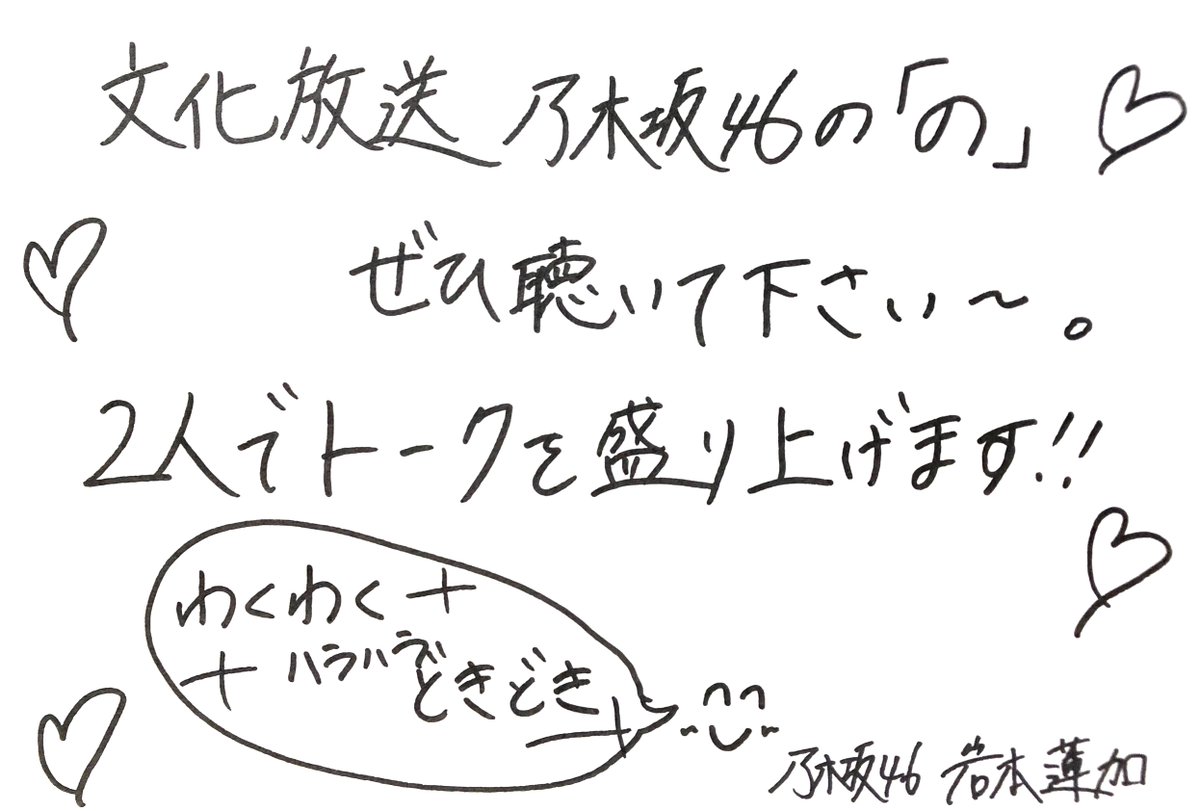 文化放送 乃木坂46の「の」
ぜひ聴いて下さい〜。
2人でトークを盛り上げます!!
わくわく+
+ハラハラ
どきどき
+
乃木坂46 岩本蓮加